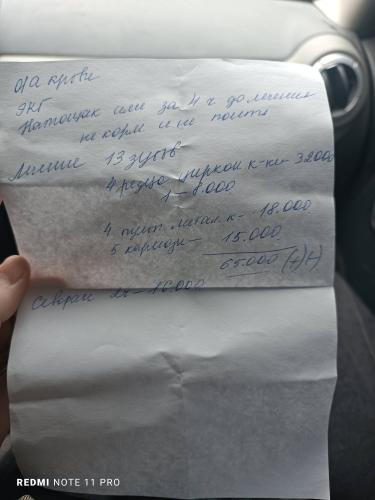 о/а крови
ЭКГ
Натощак или за 4 ч до лечения
не корм и не поить
Лечение 13 зубов
4 резца циркон к-ки - 32000
1 - 8.000
4 пульп. метал. к - 18.000
5 кариоз - 15.000
65.000 (+)(-)
Севоран 2ч - 16.000
REDMI NOTE 11 PRO